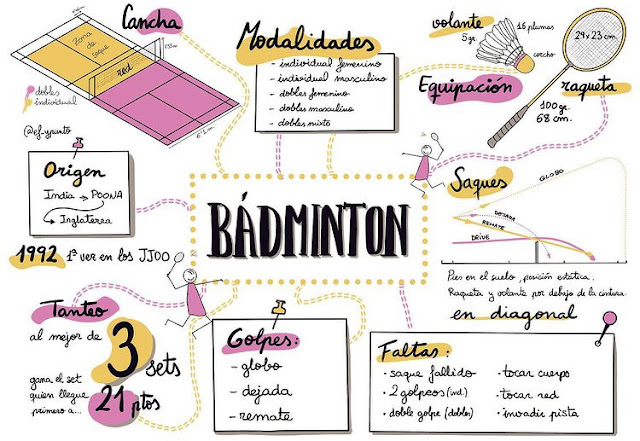 Cancha
zona
de
saque
red
155m
dobles
individual
6'1 m
@ef_ypunto
Modalidades
- individual femenino
- individual masculino
- dobles femenino
- dobles masculino
- dobles mixto
volante
5gr.
16 plumas
corcho
29x23 cm
Equipación
raqueta
100gr.
68 cm.
Origen
India → POONA
Inglaterra
1992 1ª vez en los JJOO
BÁDMINTON
Saques
GLOBO
DEJADA
REMATE
DRIVE
Pies en el suelo, posición estática.
Raqueta y volante por debajo de la cintura.
en diagonal
Tanteo
al mejor de
3
sets
gana el set
quien llegue
primero a...
21 ptos
Golpes:
- globo
- dejada
- remate
Faltas:
• saque fallido
• 2 golpeos (ind.)
• doble golpe (dobles)
• tocar cuerpo
• tocar red
• invadir pista